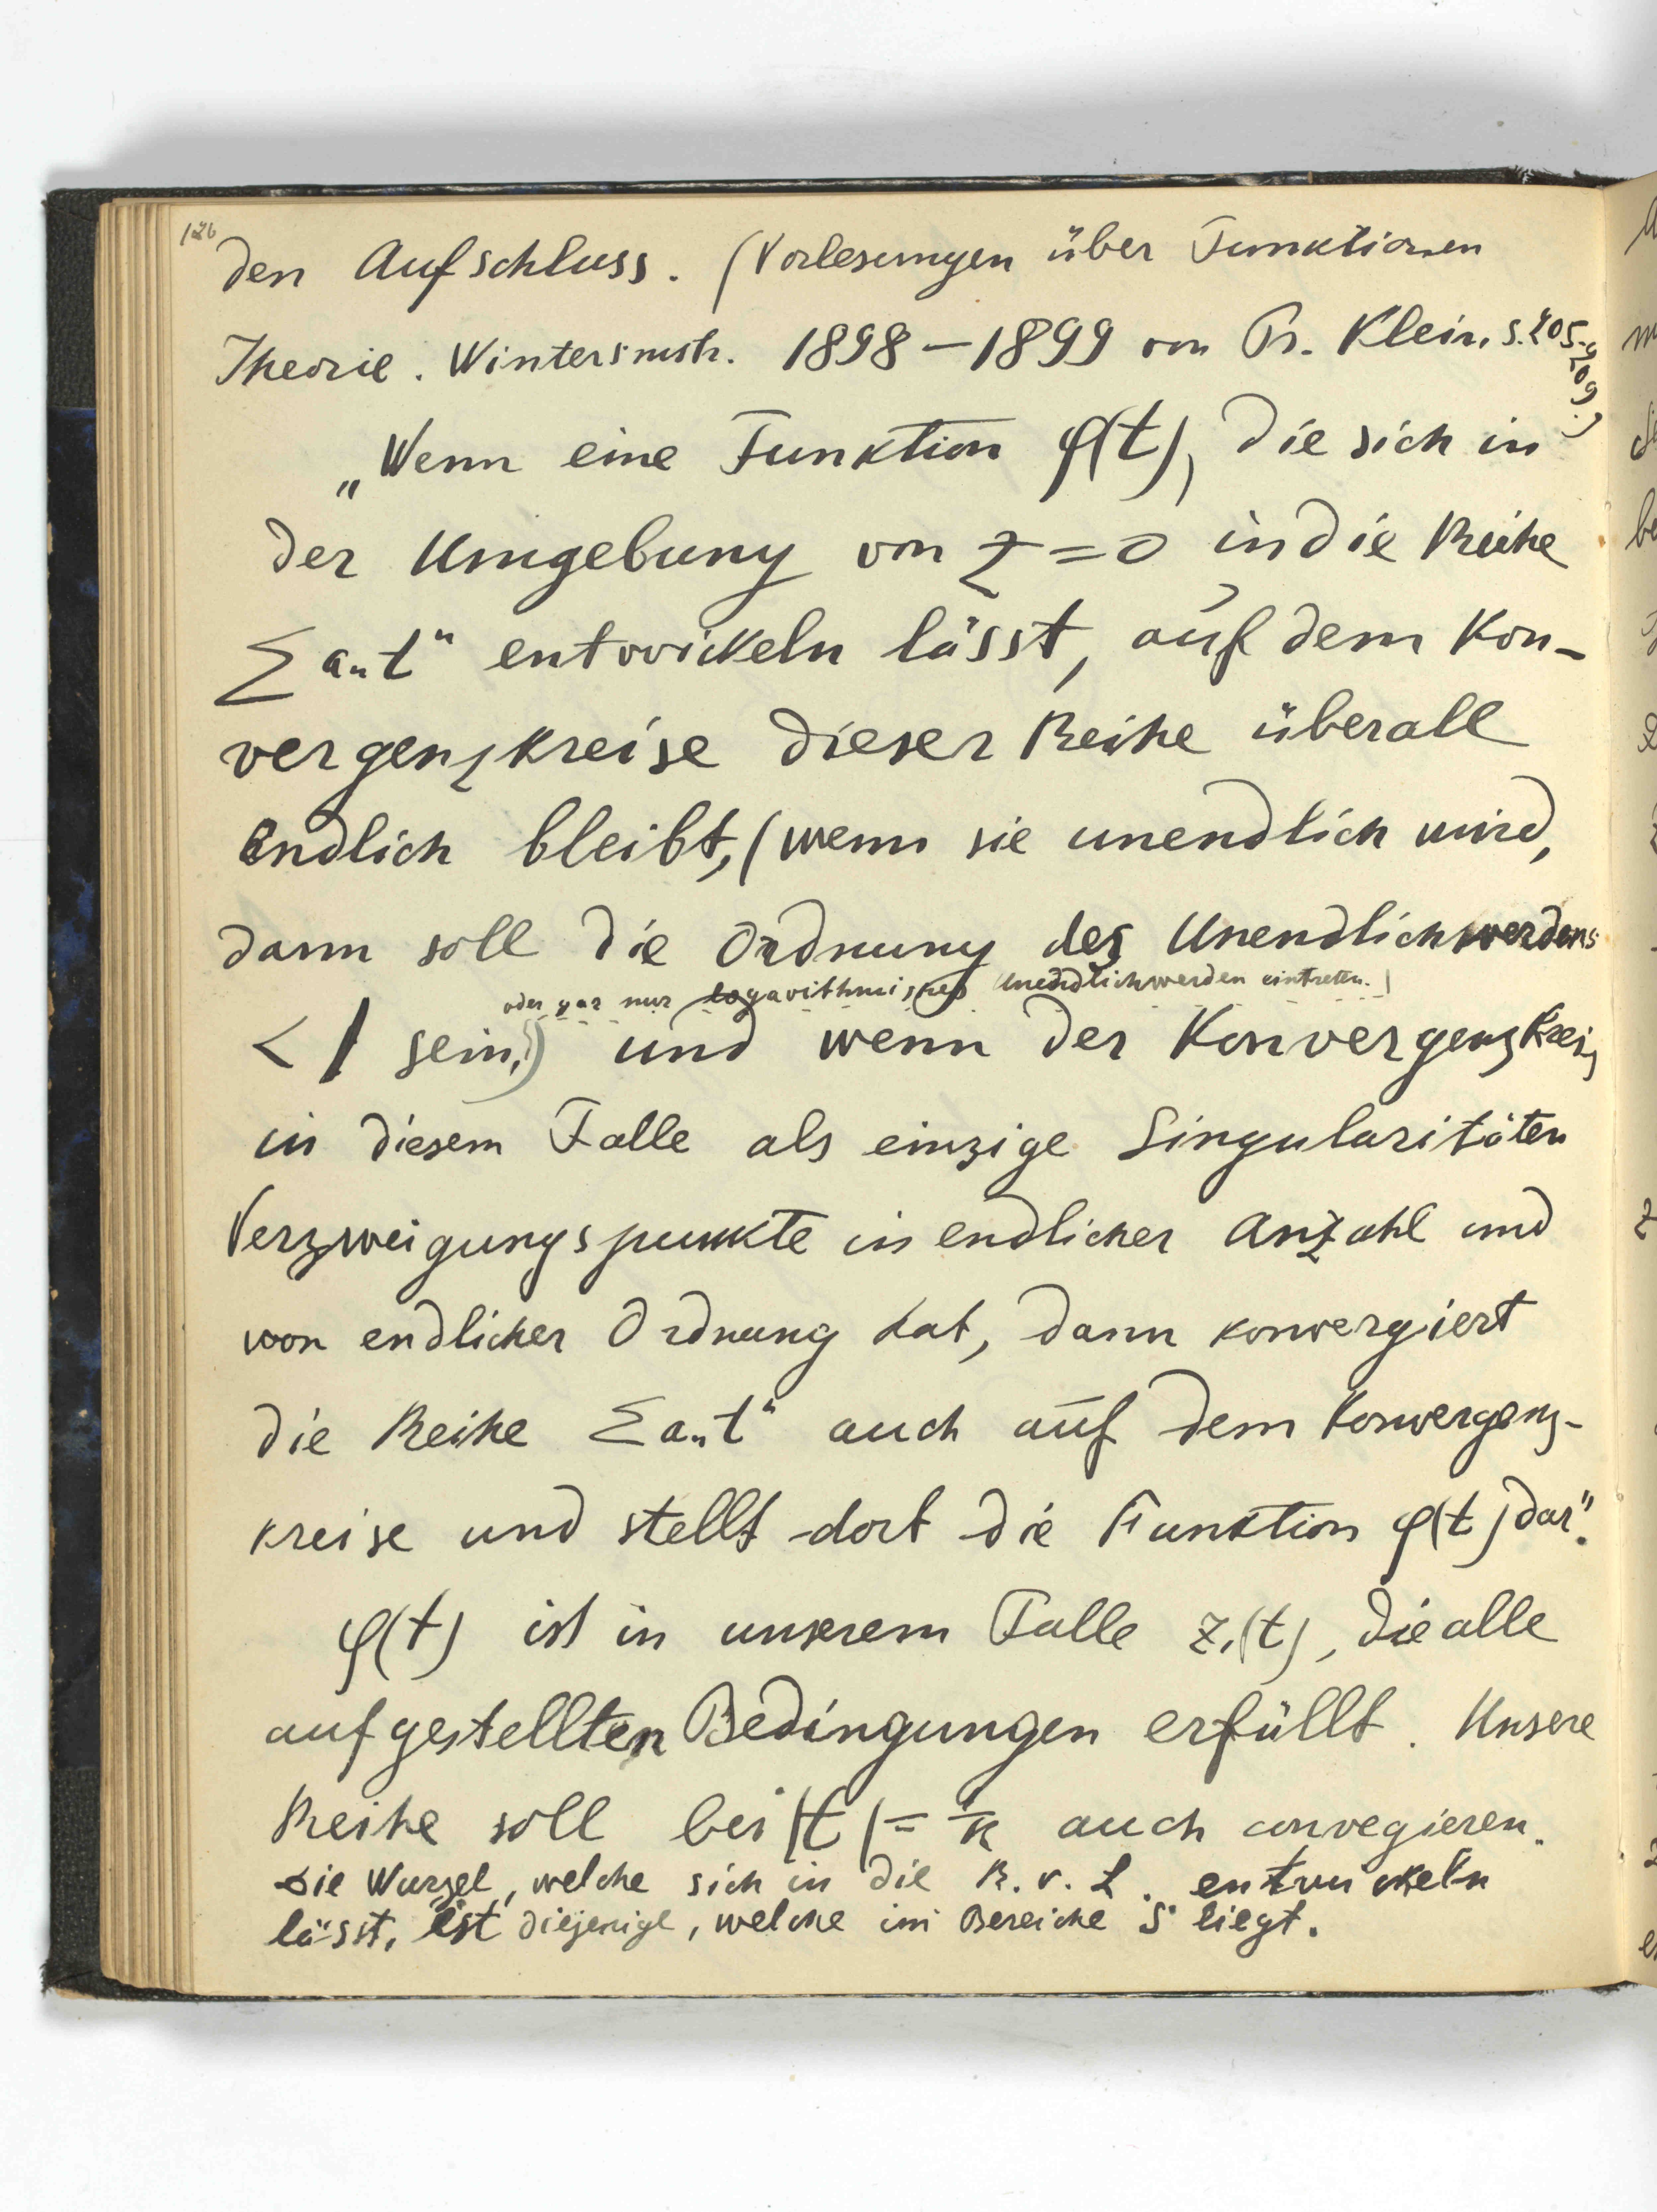 126
den Aufschluss. (Vorlesungen über Funktionen
Theorie. Wintersmstr. 1898–1899 von Pr. Klein. S. 205–209.)
„Wenn eine Funktion φ(t), die sich in
der Umgebung von z=0 in die Reihe
Σ aₙtⁿ entwickeln lässt, auf dem Kon-
vergenzkreise dieser Reihe überall
endlich bleibt, (wenn sie unendlich wird,
dann soll die Ordnung des Unendlichwerdens
oder gar nur logarithmisches Unendlichwerden eintreten.)
< 1 sein,) und wenn der Konvergenzkreis
in diesem Falle als einzige Singularitäten
Verzweigungspunkte in endlicher Anzahl und
von endlicher Ordnung hat, dann konvergiert
die Reihe Σ aₙtⁿ auch auf dem Konvergenz-
kreise und stellt dort die Funktion φ(t) dar".
φ(t) ist in unserem Falle z₁(t), die alle
aufgestellten Bedingungen erfüllt. Unsere
Reihe soll bei |t| = 1/k auch convegieren.
Die Wurzel, welche sich in die R. v. L. entwickeln
lässt, ist diejenige, welche im Bereiche S liegt.